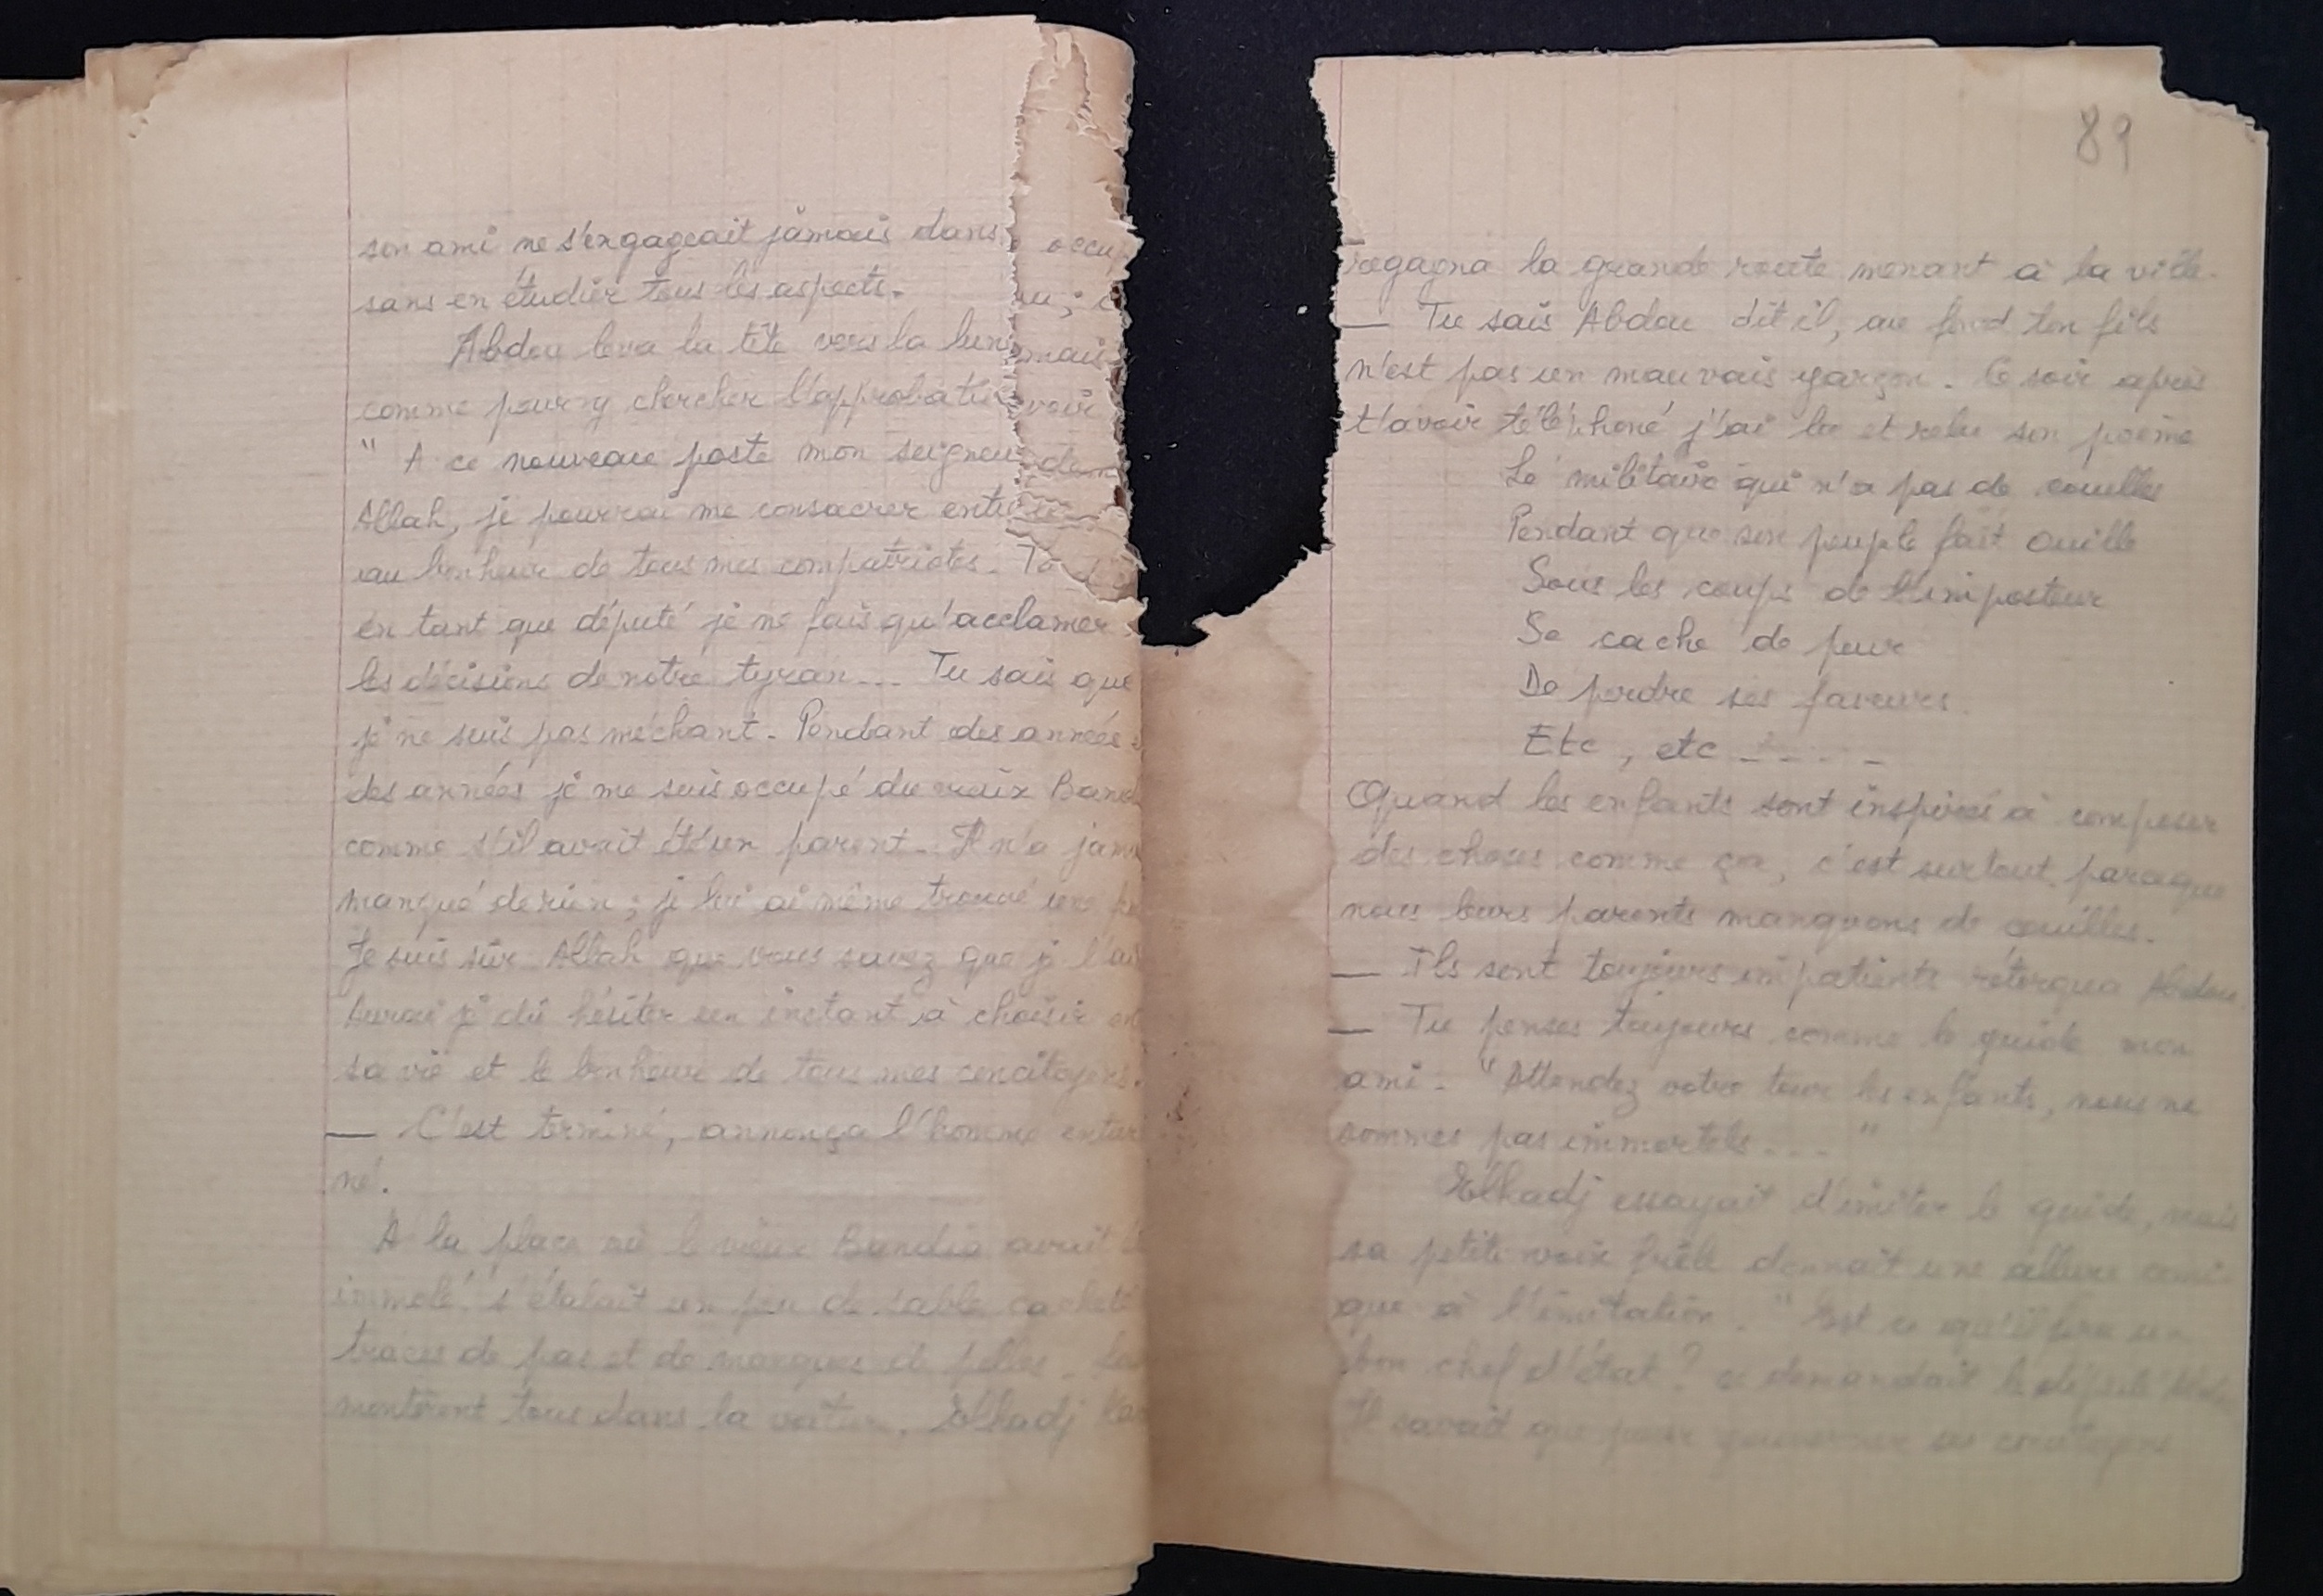 son ami ne s'engageait jamais dans
sans en étudier tous les aspects.
Abdou leva la tête vers la
comme pour y chercher
" A ce nouveau poste mon
Allah, je pourrai me consacrer
au bonheur de tous mes compatriotes.
en tant que député je ne fais qu'acclamer
les décisions de notre tyran... Tu sais que
je ne suis pas méchant. Pendant des années
des années je me suis occupé du vieux
comme s'il avait été un parent. Il n'a
manqué de rien ; je lui ai même trouvé une
Je suis sûr Allah que vous savez que je
Aurai je dû hésiter un instant à choisir
sa vie et le bonheur de tous mes concitoyens.
— C'est terminé, annonça l'homme
né.
A la place où le vieux Bandia avait
immolé, s'étalait un peu de sable
traces de pas et de marques de pelles.
montèrent tous dans la voiture. Elhadj
89
regagna la grande route menant à la ville.
— Tu sais Abdou dit il, au fond ton fils
n'est pas un mauvais garçon. Ce soir après
t'avoir téléphoné j'ai lu et relu son poème
Le militaire qui n'a pas de couilles
Pendant que son peuple fait ouille
Sous les coups de l'imposteur
Se cache de peur
De perdre ses faveurs.
Etc, etc .....
Quand les enfants sont inspirés à composer
des choses comme ça, c'est surtout parceque
nous leurs parents manquons de couilles.
— Ils sont toujours impatients rétorqua Abdou.
— Tu penses toujours comme le guide mon
ami. "Attendez votre tour les enfants, nous ne
sommes pas immortels ... "
Elhadj essayait d'imiter le guide, mais
sa petite voix frêle donnait une allure comi-
que à l'imitation. " Est ce qu'il fera un
bon chef d'état ? se demandait le député
Il savait que pour gouverner ses concitoyens